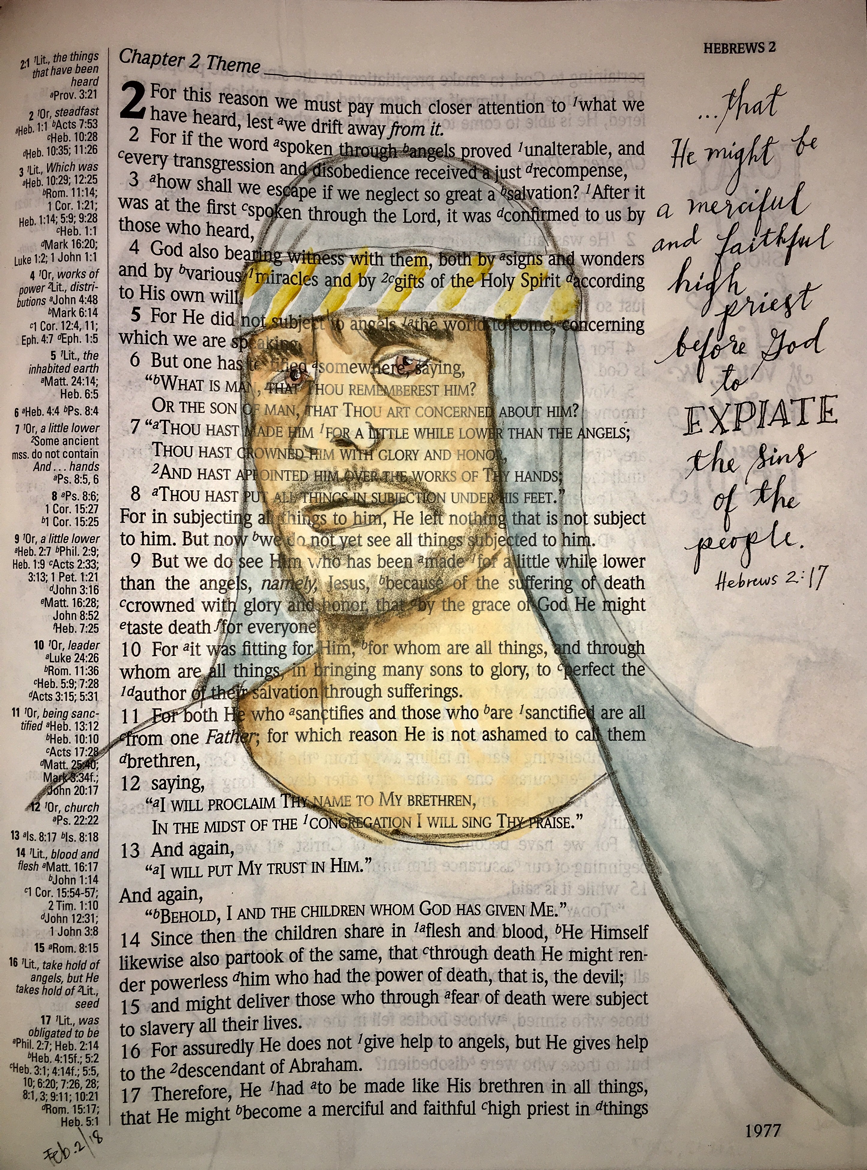 HEBREWS 2
2:1 ¹Lit., the things
that have been
heard
ᵃProv. 3:21
2 ¹Or, steadfast
ᵃHeb. 1:1 ᵇActs 7:53
ᶜHeb. 10:28
ᵈHeb. 10:35; 11:26
3 ¹Lit., Which was
ᵃHeb. 10:29; 12:25
ᵇRom. 11:14;
1 Cor. 1:21;
Heb. 1:14; 5:9; 9:28
ᶜHeb. 1:1
ᵈMark 16:20;
Luke 1:2; 1 John 1:1
4 ¹Or, works of
power ²Lit., distri-
butions ᵃJohn 4:48
ᵇMark 6:14
ᶜ1 Cor. 12:4, 11;
Eph. 4:7 ᵈEph. 1:5
5 ¹Lit., the
inhabited earth
ᵃMatt. 24:14;
Heb. 6:5
6 ᵃHeb. 4:4 ᵇPs. 8:4
7 ¹Or, a little lower
²Some ancient
mss. do not contain
And . . . hands
ᵃPs. 8:5, 6
8 ᵃPs. 8:6;
1 Cor. 15:27
ᵇ1 Cor. 15:25
9 ¹Or, a little lower
ᵃHeb. 2:7 ᵇPhil. 2:9;
Heb. 1:9 ᶜActs 2:33;
3:13; 1 Pet. 1:21
ᵈJohn 3:16
ᵉMatt. 16:28;
John 8:52
ᶠHeb. 7:25
10 ¹Or, leader
ᵃLuke 24:26
ᵇRom. 11:36
ᶜHeb. 5:9; 7:28
ᵈActs 3:15; 5:31
11 ¹Or, being sanc-
tified ᵃHeb. 13:12
ᵇHeb. 10:10
ᶜActs 17:28
ᵈMatt. 25:40;
Mark 3:34f.;
John 20:17
12 ¹Or, church
ᵃPs. 22:22
13 ᵃIs. 8:17 ᵇIs. 8:18
14 ¹Lit., blood and
flesh ᵃMatt. 16:17
ᵇJohn 1:14
ᶜ1 Cor. 15:54-57;
2 Tim. 1:10
ᵈJohn 12:31;
1 John 3:8
15 ᵃRom. 8:15
16 ¹Lit., take hold of
angels, but He
takes hold of ²Lit.,
seed
17 ¹Lit., was
obligated to be
ᵃPhil. 2:7; Heb. 2:14
ᵇHeb. 4:15f.; 5:2
ᶜHeb. 3:1; 4:14f.; 5:5,
10; 6:20; 7:26, 28;
8:1, 3; 9:11; 10:21
ᵈRom. 15:17;
Heb. 5:1
Feb. 2/18
Chapter 2 Theme
2 For this reason we must pay much closer attention to ¹what we
have heard, lest ᵃwe drift away from it.
2 For if the word ᵃspoken through ᵇangels proved ¹unalterable, and
ᶜevery transgression and disobedience received a just ᵈrecompense,
3 ᵃhow shall we escape if we neglect so great a ᵇsalvation? ¹After it
was at the first ᶜspoken through the Lord, it was ᵈconfirmed to us by
those who heard,
4 God also bearing witness with them, both by ᵃsigns and wonders
and by ᵇvarious ¹miracles and by ²ᶜgifts of the Holy Spirit ᵈaccording
to His own will.
5 For He did not subject to angels ¹ᵃthe world to come, concerning
which we are speaking.
6 But one has testified ᵃsomewhere, saying,
"ᵇWHAT IS MAN, THAT THOU REMEMBEREST HIM?
OR THE SON OF MAN, THAT THOU ART CONCERNED ABOUT HIM?
7 "ᵃTHOU HAST MADE HIM ¹FOR A LITTLE WHILE LOWER THAN THE ANGELS;
THOU HAST CROWNED HIM WITH GLORY AND HONOR,
²AND HAST APPOINTED HIM OVER THE WORKS OF THY HANDS;
8 ᵃTHOU HAST PUT ALL THINGS IN SUBJECTION UNDER HIS FEET."
For in subjecting all things to him, He left nothing that is not subject
to him. But now ᵇwe do not yet see all things subjected to him.
9 But we do see Him who has been ᵃmade ¹for a little while lower
than the angels, namely, Jesus, ᵇbecause of the suffering of death
ᶜcrowned with glory and honor, that ᵈby the grace of God He might
ᵉtaste death ᶠfor everyone.
10 For ᵃit was fitting for Him, ᵇfor whom are all things, and through
whom are all things, in bringing many sons to glory, to ᶜperfect the
¹ᵈauthor of their salvation through sufferings.
11 For both He who ᵃsanctifies and those who ᵇare ¹sanctified are all
ᶜfrom one Father; for which reason He is not ashamed to call them
ᵈbrethren,
12 saying,
"ᵃI WILL PROCLAIM THY NAME TO MY BRETHREN,
IN THE MIDST OF THE ¹CONGREGATION I WILL SING THY PRAISE."
13 And again,
"ᵃI WILL PUT MY TRUST IN HIM."
And again,
"ᵇBEHOLD, I AND THE CHILDREN WHOM GOD HAS GIVEN ME."
14 Since then the children share in ¹ᵃflesh and blood, ᵇHe Himself
likewise also partook of the same, that ᶜthrough death He might ren-
der powerless ᵈhim who had the power of death, that is, the devil;
15 and might deliver those who through ᵃfear of death were subject
to slavery all their lives.
16 For assuredly He does not ¹give help to angels, but He gives help
to the ²descendant of Abraham.
17 Therefore, He ¹had ᵃto be made like His brethren in all things,
that He might ᵇbecome a merciful and faithful ᶜhigh priest in ᵈthings
...that
He might be
a merciful
and faithful
high
priest
before God
to
EXPIATE
the sins
of the
people.
Hebrews 2:17
1977